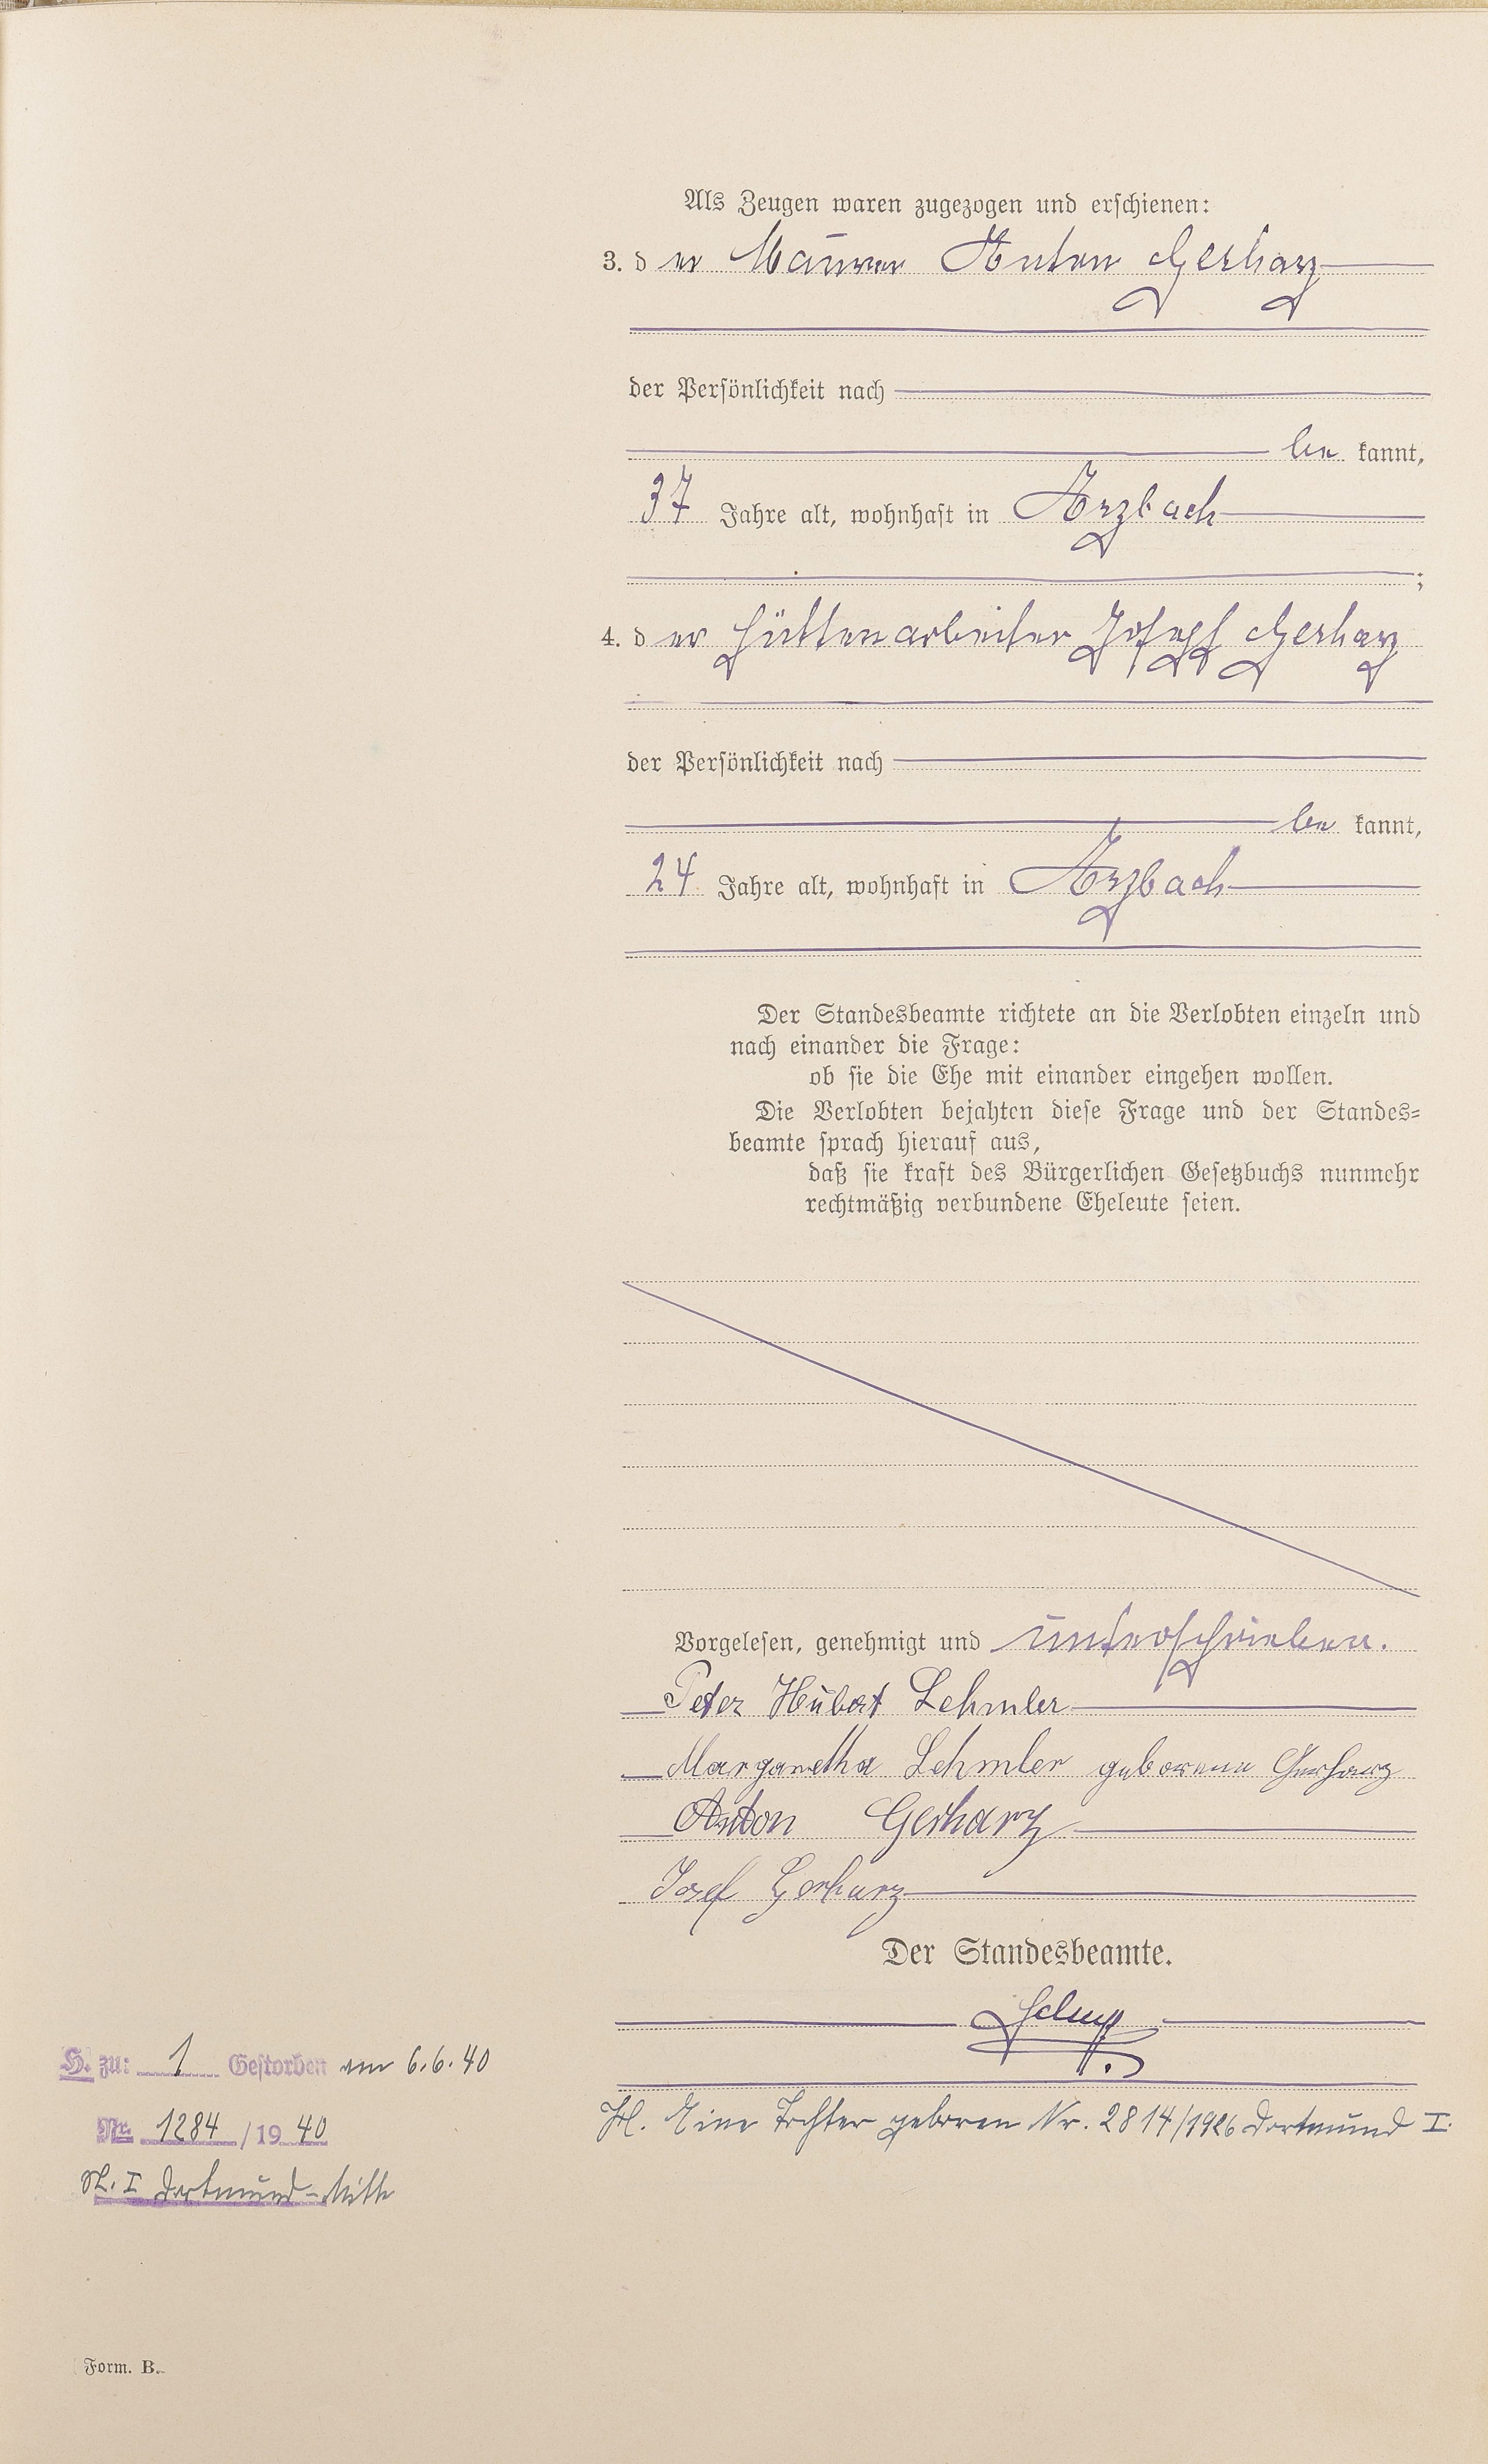 Als Zeugen waren zugezogen und erschienen:
3. d er Maurer Anton Gerharz
der Persönlichkeit nach
be kannt,
37 Jahre alt, wohnhaft in Arzbach
;
4. d er Hüttenarbeiter Joseph Gerharz
der Persönlichkeit nach
be kannt,
24 Jahre alt, wohnhaft in Arzbach
Der Standesbeamte richtete an die Verlobten einzeln und
nach einander die Frage:
ob sie die Ehe mit einander eingehen wollen.
Die Verlobten bejahten diese Frage und der Standes=
beamte sprach hierauf aus,
daß sie kraft des Bürgerlichen Gesetzbuchs nunmehr
rechtmäßig verbundene Eheleute seien.
Vorgelesen, genehmigt und unterschrieben.
Peter Hubert Lehmler
Margaretha Lehmler geborene Gerharz
Anton Gerharz
Josef Gerharz
Der Standesbeamte.
H. zu: 1 Gestorben am 6.6.40
Nr. 1284 / 19 40
St. I Dortmund-Mitte
Eine Tochter geboren Nr. 2814/1926 Dortmund I.
Form. B.